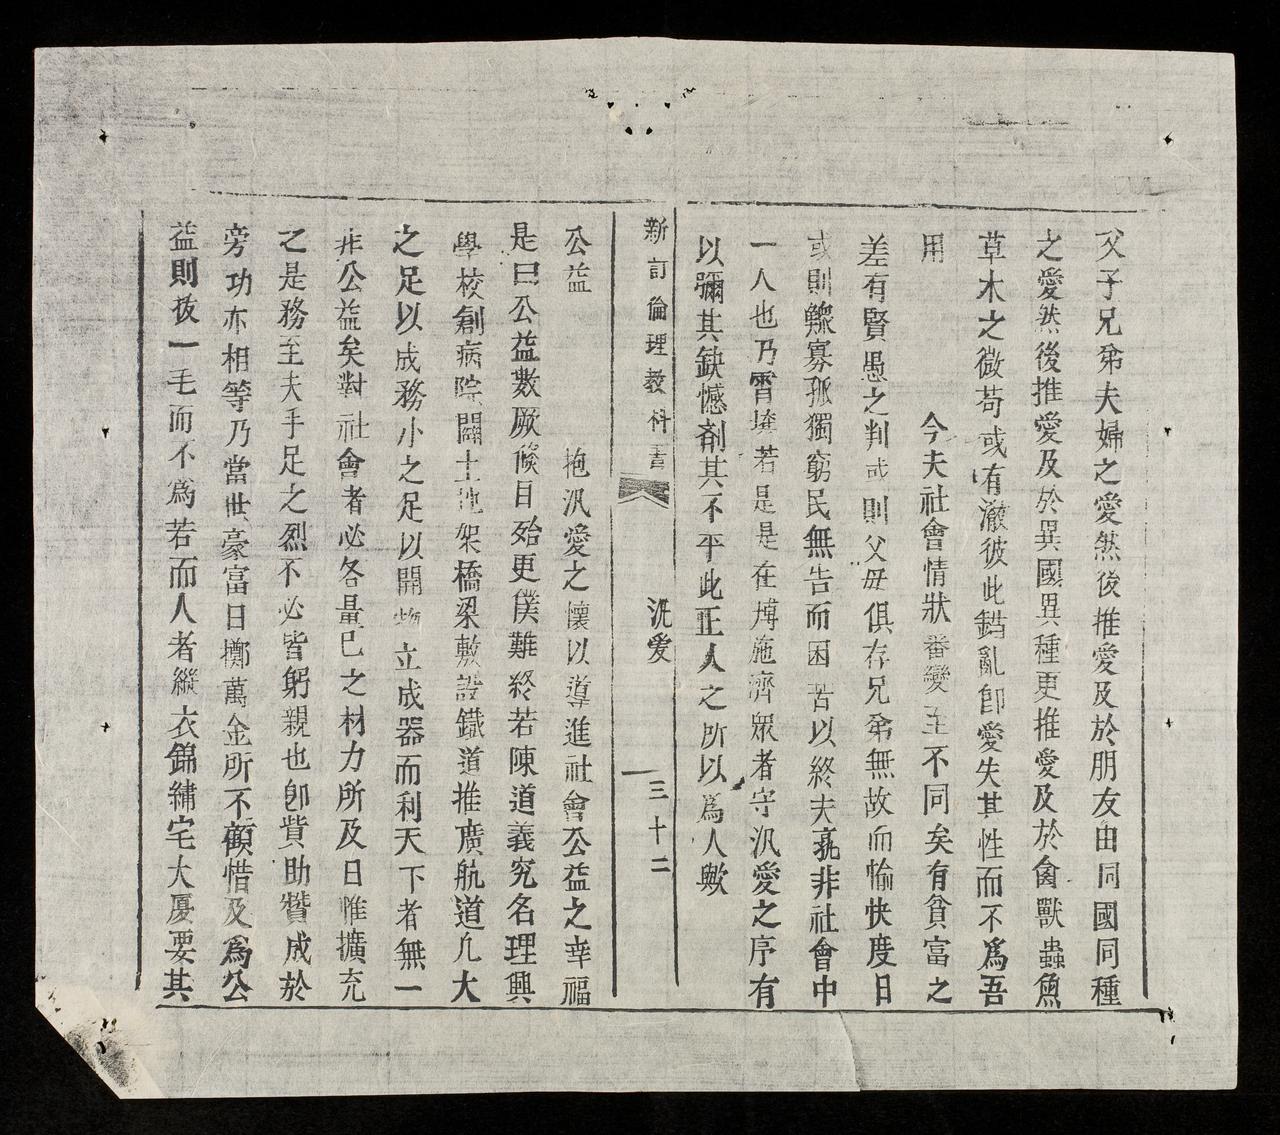 父子兄弟夫婦之愛然後推愛及於朋友由同國同種
之愛然後推愛及於異國異種更推愛及於禽獸蟲魚
草木之微苟或有澈彼此錯亂卽愛失其性而不爲吾
用　今夫社會情狀番變至不同矣有貧富之
差有賢愚之判或則父母俱存兄弟無故而愉快度日
或則鰥寡孤獨窮民無告而困苦以終夫孰非社會中
一人也乃霄壤若是是在博施濟眾者守汎愛之序有
以彌其缺憾劑其不平此正人之所以爲人歟
新訂倫理教科書　汎愛　三十二
公益　抱汎愛之懷以導進社會公益之幸福
是曰公益數厥條目殆更僕難終若陳道義究名理興
學校創病院闢土地架橋梁敷設鐵道推廣航道凡大
之足以成務小之足以開物立成器而利天下者無一
非公益矣對社會者必各量己之材力所及日惟擴充
之是務至夫手足之烈不必皆躬親也卽貲助贊成於
旁功亦相等乃當世豪富日擲萬金所不顧惜及爲公
益則拔一毛而不爲若而人者縱衣錦繡宅大廈要其